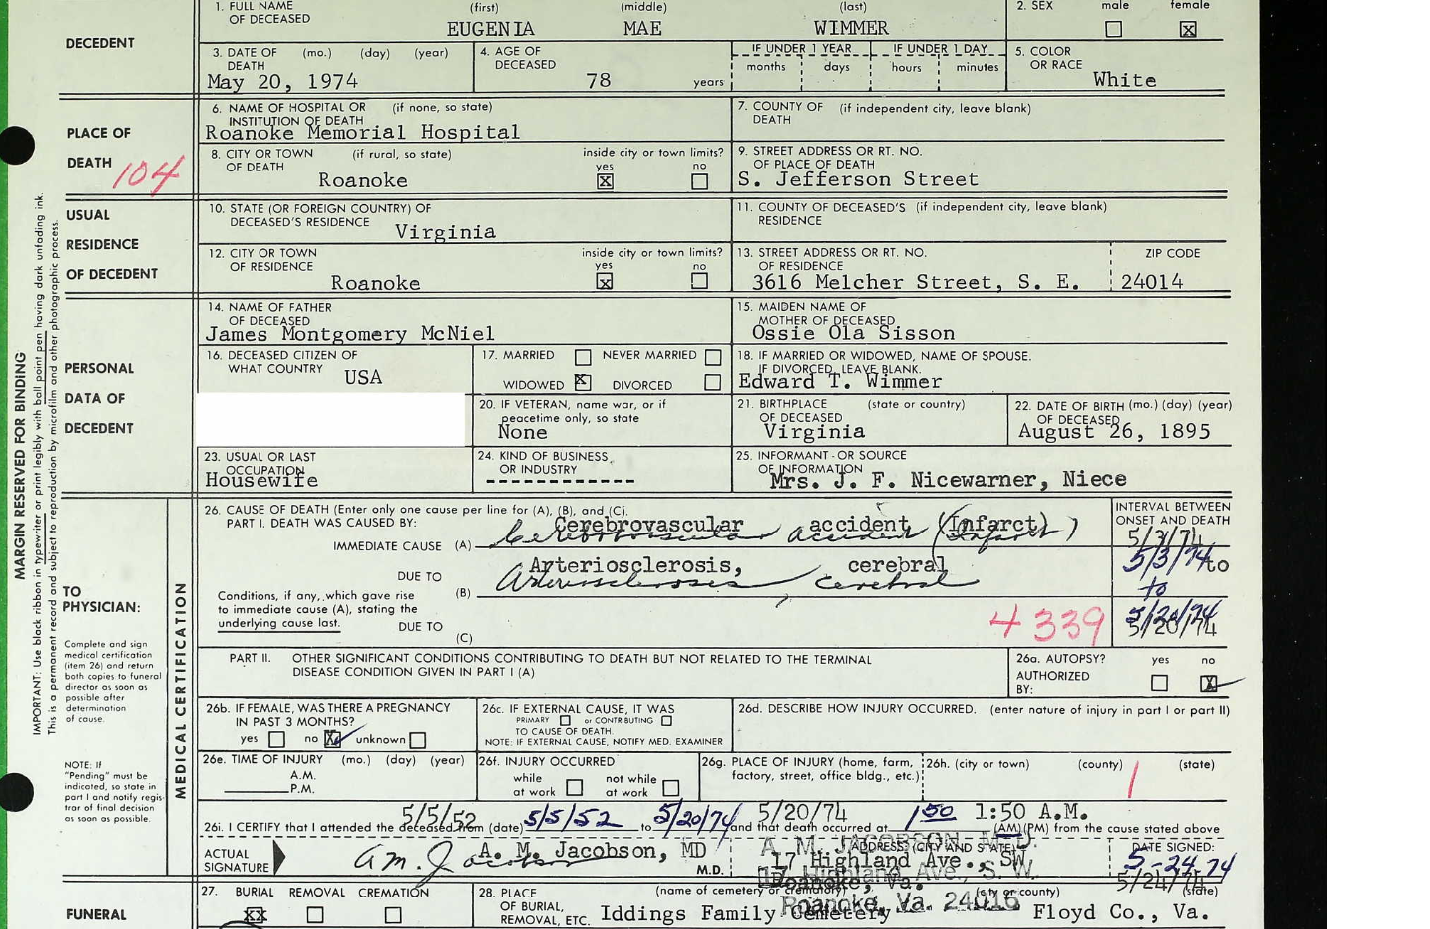 1. FULL NAME OF DECEASED (first) EUGENIA (middle) MAE (last) WIMMER
2. SEX male ☐ female ☒
DECEDENT
3. DATE OF DEATH (mo.) (day) (year) May 20, 1974
4. AGE OF DECEASED 78 years
IF UNDER 1 YEAR months days
IF UNDER 1 DAY hours minutes
5. COLOR OR RACE White
PLACE OF DEATH 104
6. NAME OF HOSPITAL OR INSTITUTION OF DEATH (if none, so state) Roanoke Memorial Hospital
7. COUNTY OF DEATH (if independent city, leave blank)
8. CITY OR TOWN OF DEATH (if rural, so state) Roanoke
inside city or town limits? yes ☒ no ☐
9. STREET ADDRESS OR RT. NO. OF PLACE OF DEATH S. Jefferson Street
USUAL RESIDENCE OF DECEDENT
10. STATE (OR FOREIGN COUNTRY) OF DECEASED'S RESIDENCE Virginia
11. COUNTY OF DECEASED'S RESIDENCE (if independent city, leave blank)
12. CITY OR TOWN OF RESIDENCE Roanoke
inside city or town limits? yes ☒ no ☐
13. STREET ADDRESS OR RT. NO. OF RESIDENCE 3616 Melcher Street, S. E.
ZIP CODE 24014
PERSONAL DATA OF DECEDENT
14. NAME OF FATHER OF DECEASED James Montgomery McNiel
15. MAIDEN NAME OF MOTHER OF DECEASED Ossie Ola Sisson
16. DECEASED CITIZEN OF WHAT COUNTRY USA
17. MARRIED ☐ NEVER MARRIED ☐ WIDOWED ☒ DIVORCED ☐
18. IF MARRIED OR WIDOWED, NAME OF SPOUSE. IF DIVORCED, LEAVE BLANK. Edward T. Wimmer
20. IF VETERAN, name war, or if peacetime only, so state None
21. BIRTHPLACE OF DECEASED (state or country) Virginia
22. DATE OF BIRTH OF DECEASED (mo.) (day) (year) August 26, 1895
23. USUAL OR LAST OCCUPATION Housewife
24. KIND OF BUSINESS OR INDUSTRY -------------
25. INFORMANT-OR SOURCE OF INFORMATION Mrs. J. F. Nicewarner, Niece
MARGIN RESERVED FOR BINDING
IMPORTANT: Use black ribbon in typewriter or print legibly with ball point pen having dark unfading ink.
This is a permanent record and subject to reproduction by microfilm and other photographic process.
TO PHYSICIAN:
Complete and sign medical certification (item 26) and return both copies to funeral director as soon as possible after determination of cause.
NOTE: If "Pending" must be indicated, so state in part I and notify registrar of final decision as soon as possible.
MEDICAL CERTIFICATION
26. CAUSE OF DEATH (Enter only one cause per line for (A), (B), and (C).
PART I. DEATH WAS CAUSED BY:
IMMEDIATE CAUSE (A) Cerebrovascular accident (Infarct)
Cerebrovascular accident (Infarct)
INTERVAL BETWEEN ONSET AND DEATH
5/3/74
5/3/74 to
to
5/20/74
5/20/74
DUE TO (B) Arteriosclerosis, cerebral
Arteriosclerosis, cerebral
Conditions, if any, which gave rise to immediate cause (A), stating the underlying cause last.
DUE TO (C)
4339
PART II. OTHER SIGNIFICANT CONDITIONS CONTRIBUTING TO DEATH BUT NOT RELATED TO THE TERMINAL DISEASE CONDITION GIVEN IN PART I (A)
26a. AUTOPSY? AUTHORIZED BY: yes ☐ no ☒
26b. IF FEMALE, WAS THERE A PREGNANCY IN PAST 3 MONTHS? yes ☐ no ☒ unknown ☐
26c. IF EXTERNAL CAUSE, IT WAS PRIMARY ☐ or CONTRIBUTING ☐ TO CAUSE OF DEATH.
NOTE: IF EXTERNAL CAUSE, NOTIFY MED. EXAMINER
26d. DESCRIBE HOW INJURY OCCURRED. (enter nature of injury in part I or part II)
26e. TIME OF INJURY (mo.) (day) (year) A.M. P.M.
26f. INJURY OCCURRED while at work ☐ not while at work ☐
26g. PLACE OF INJURY (home, farm, factory, street, office bldg., etc.)
26h. (city or town) (county) (state)
5/5/52 5/20/74 1:50 A.M.
26i. I CERTIFY that I attended the deceased from (date) 5/5/52 to 5/20/74 and that death occurred at 150 (AM) (PM) from the cause stated above
ACTUAL SIGNATURE A. M. Jacobson, MD M.D.
A. M. JACOBSON, M.D.
ADDRESS: (CITY AND STATE)
17 Highland Ave., SW
17 Highland Ave., S. W.
Roanoke, Va.
Roanoke, Va. 24016
DATE SIGNED: 5-24-74
5/24/74
FUNERAL
27. BURIAL ☒ REMOVAL ☐ CREMATION ☐
28. PLACE OF BURIAL, REMOVAL, ETC. (name of cemetery or crematory) Iddings Family Cemetery
(city or county) (state) Floyd Co., Va.